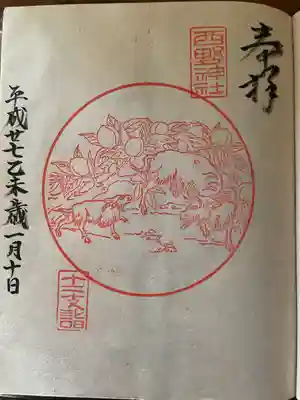 奉拝
西野神社
十二支
平成廿七乙未歳一月十日